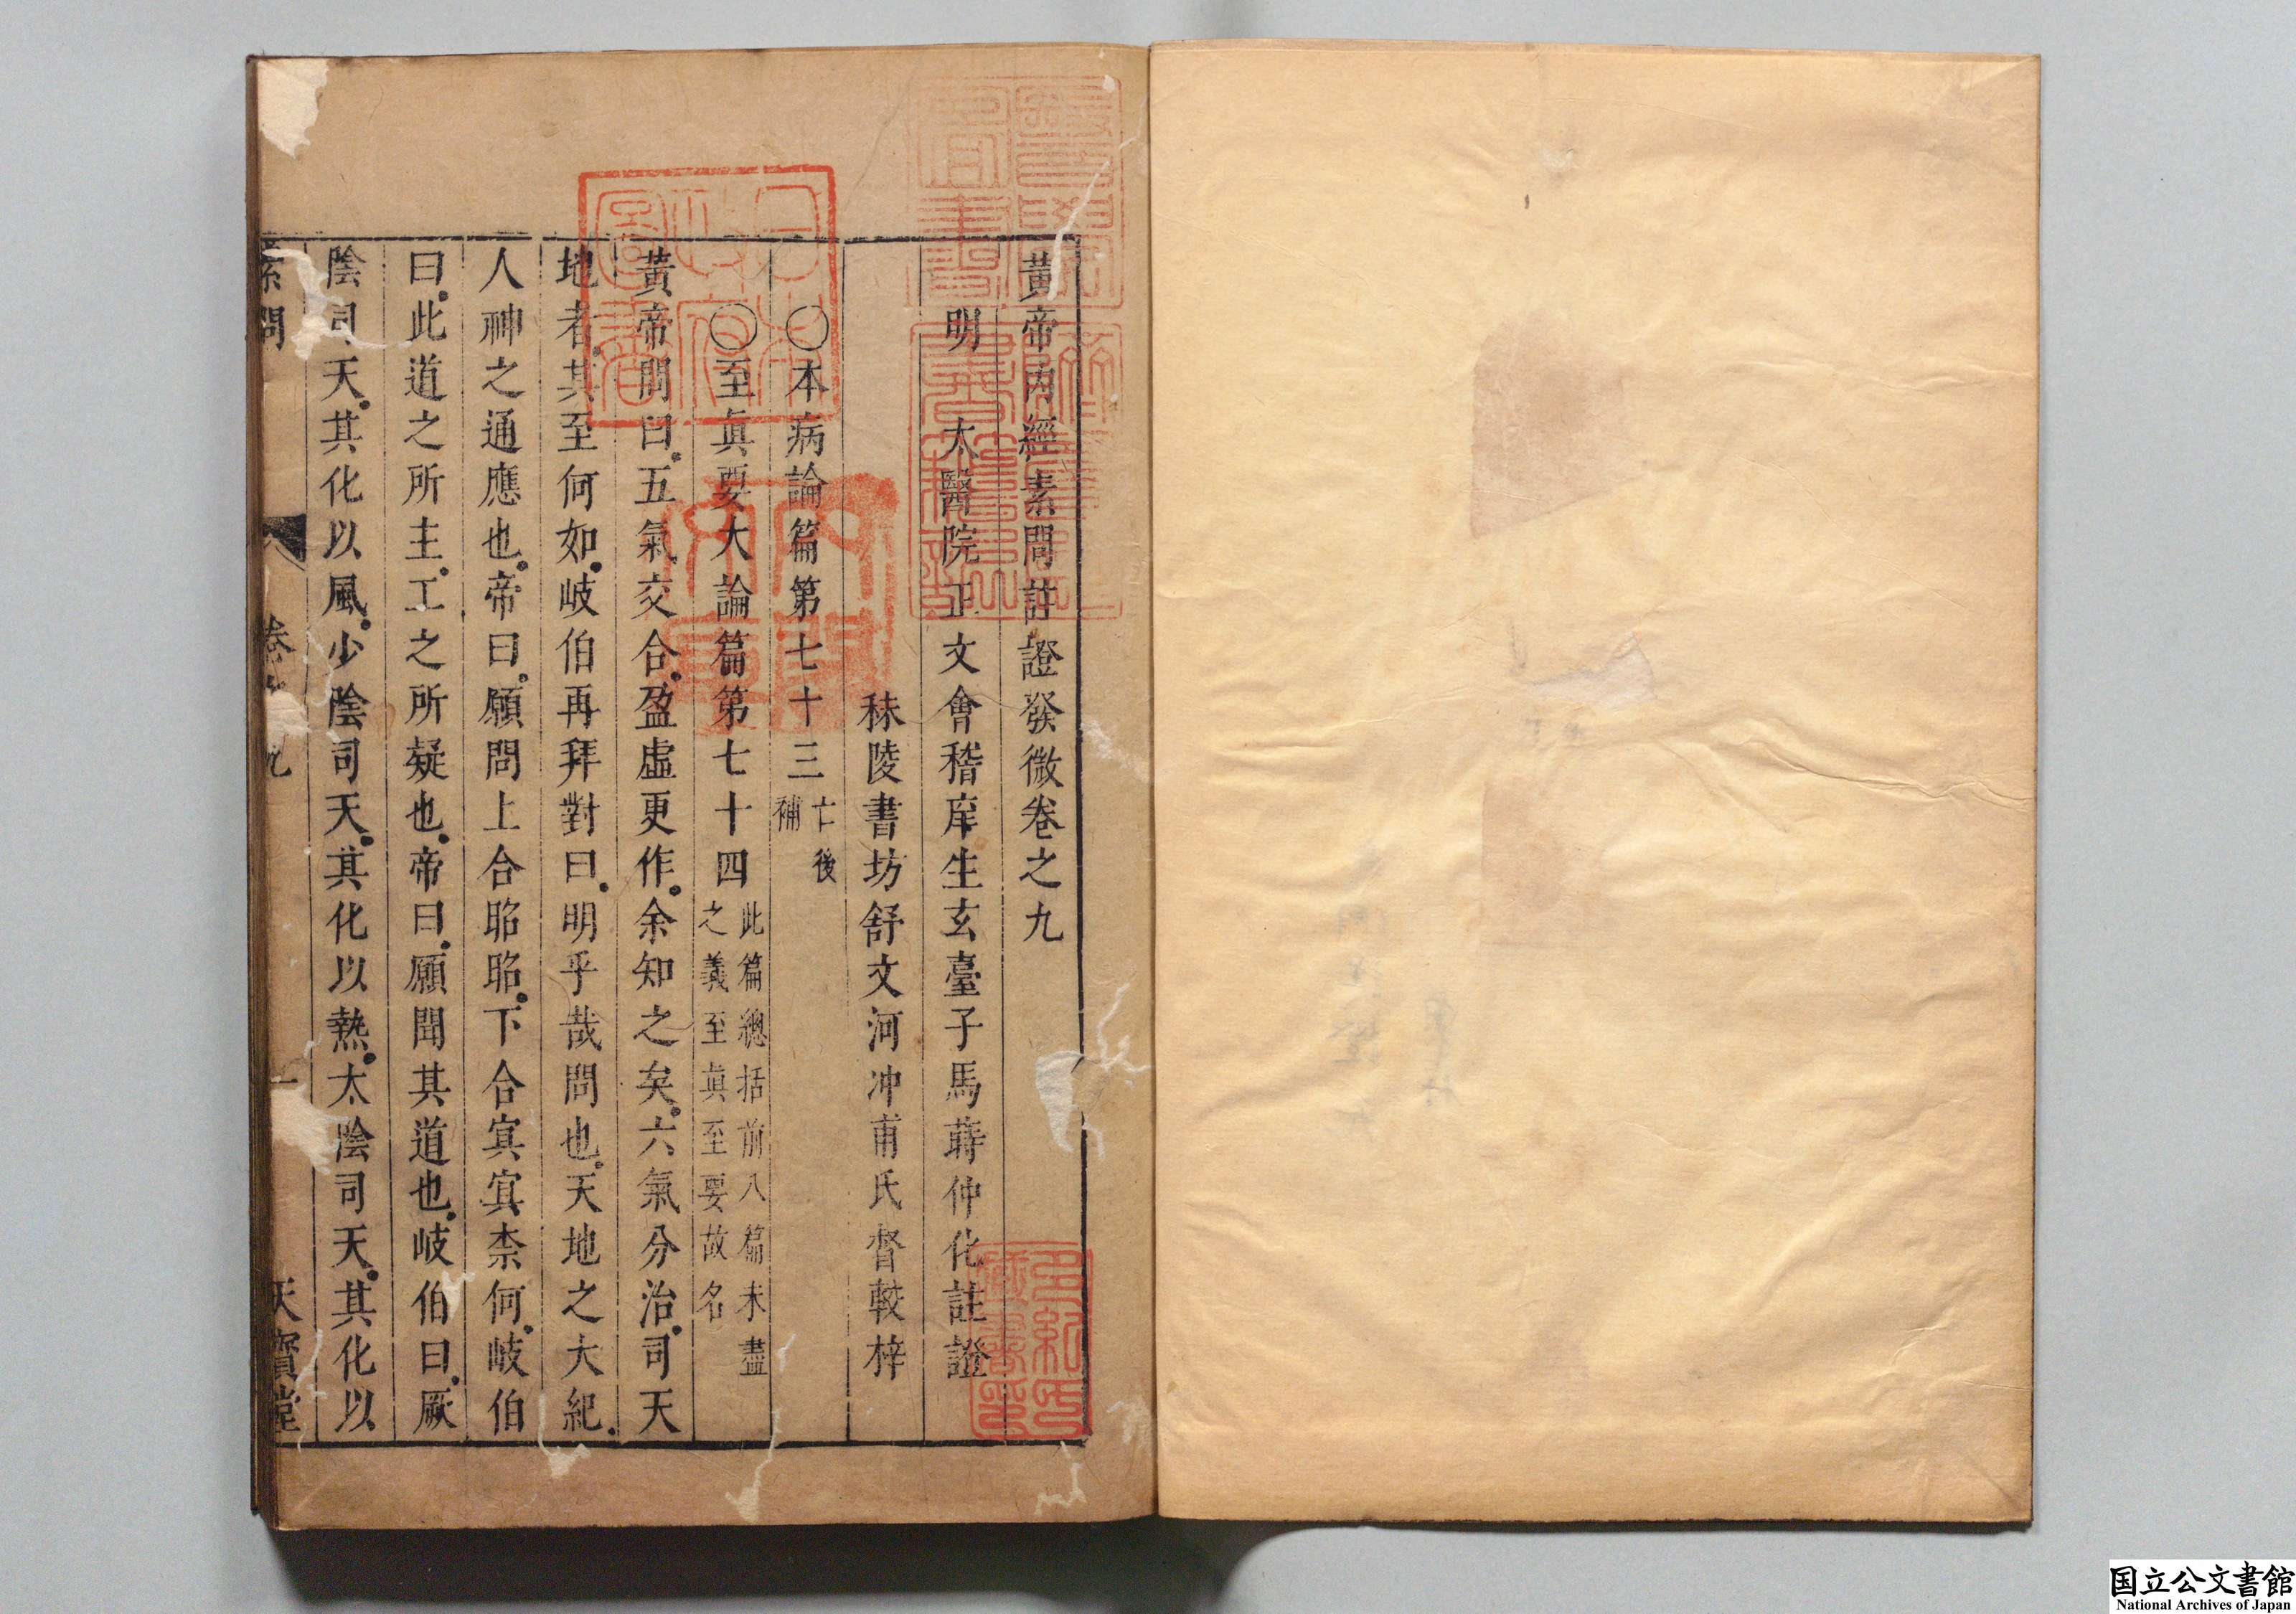 黃帝內經素問註證發微卷之九
明 太醫院正文會稽庠生玄臺子馬蒔仲化註證
秣陵書坊舒文河冲甫氏督較梓
〇本病論篇第七十三亡後補
〇至眞要大論篇第七十四此篇總括前八篇未盡之義至眞至要故名
黃帝問曰五氣交合盈虛更作余知之矣六氣分治司天
地者其至何如岐伯再拜對曰明乎哉問也天地之大紀
人神之通應也帝曰願聞上合昭昭下合㝠㝠柰何岐伯
曰此道之所主工之所疑也帝曰願聞其道也岐伯曰厥
陰司天其化以風少陰司天其化以熱太陰司天其化以
素問 卷 九 一 天寶堂
日本政府圖書
國立公文書館
National Archives of Japan